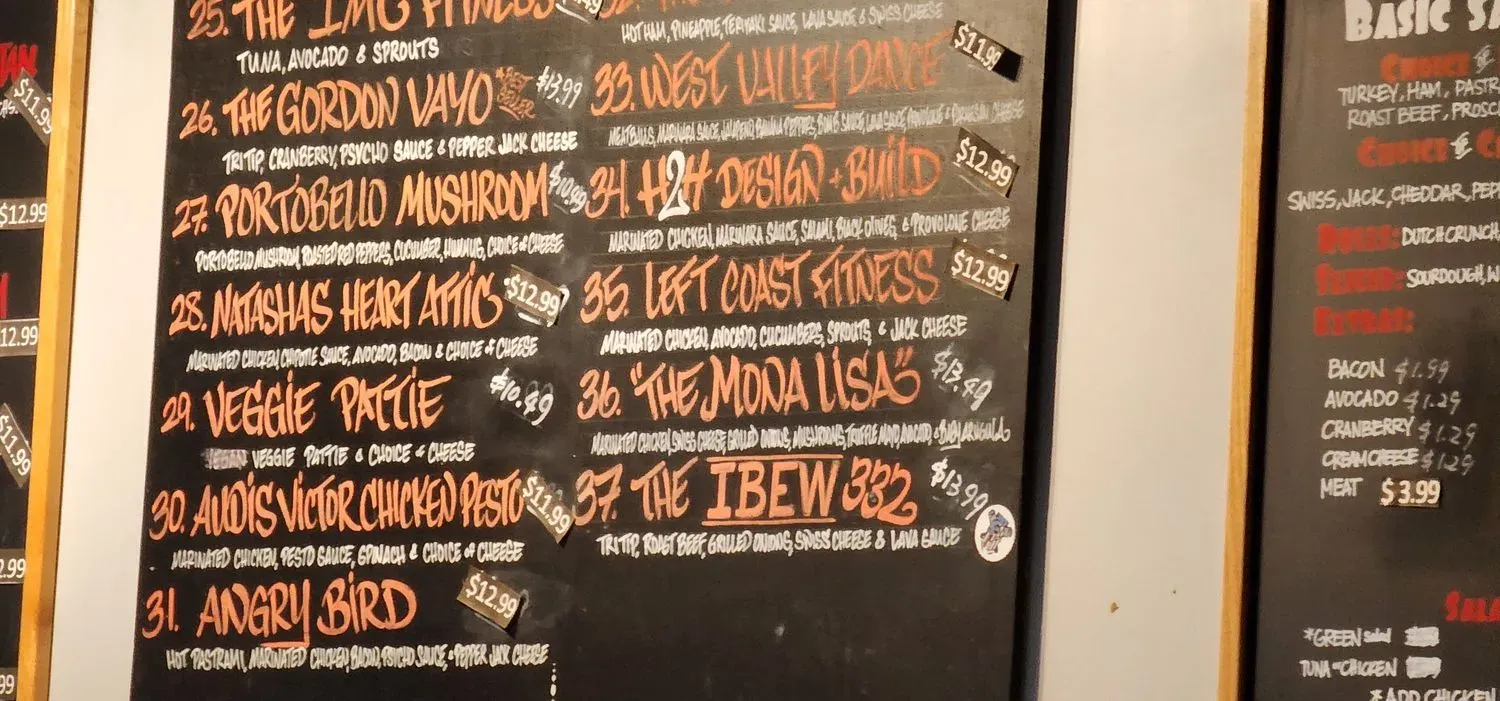 25. THE IMG FITNESS
TUNA, AVOCADO & SPROUTS
26. THE GORDON VAYO BEST SELLER $13.99
TRI TIP, CRANBERRY, PSYCHO SAUCE & PEPPER JACK CHEESE
27. PORTOBELLO MUSHROOM $10.99
PORTOBELLO MUSHROOM, ROASTED RED PEPPERS, CUCUMBER, HUMMUS, CHOICE of CHEESE
28. NATASHAS HEART ATTIC $12.99
MARINATED CHICKEN, CHIPOTLE SAUCE, AVOCADO, BACON & CHOICE of CHEESE
29. VEGGIE PATTIE $10.49
VEGAN VEGGIE PATTIE & CHOICE of CHEESE
30. AUDIS VICTOR CHICKEN PESTO $11.99
MARINATED CHICKEN, PESTO SAUCE, SPINACH & CHOICE of CHEESE
31. ANGRY BIRD $12.99
HOT PASTRAMI, MARINATED CHICKEN, BACON, PSYCHO SAUCE, & PEPPER JACK CHEESE
HOT HAM, PINEAPPLE, TERIYAKI SAUCE, LAVA SAUCE & SWISS CHEESE
33. WEST VALLEY DANCE $11.99
MEATBALLS, MARINARA SAUCE, JALAPENO, BANANA PEPPERS, BOMB SAUCE, LAVA SAUCE, PROVOLONE & PARMESAN CHEESE
34. H2H DESIGN + BUILD $12.99
MARINATED CHICKEN, MARINARA SAUCE, SALAMI, BLACK OLIVES, & PROVOLONE CHEESE
35. LEFT COAST FITNESS $12.99
MARINATED CHICKEN, AVOCADO, CUCUMBERS, SPROUTS, & JACK CHEESE
36. "THE MONA LISA" $13.49
MARINATED CHICKEN, SWISS CHEESE, GRILLED ONIONS, MUSHROOMS, TRUFFLE MAYO, AVOCADO & ARUGULA
37. THE IBEW 332 $13.99
TRI TIP, ROAST BEEF, GRILLED ONIONS, SWISS CHEESE & LAVA SAUCE
$11.99
$12.99
12.99
$11.99
2.99
99
BASIC SA
CHOICE of
TURKEY, HAM, PASTR
ROAST BEEF, PROSC
CHOICE of C
SWISS, JACK, CHEDDAR, PEPP
ROLLS: DUTCH CRUNCH
SOURDOUGH, W
EXTRAS:
BACON $1.99
AVOCADO $1.29
CRANBERRY $1.29
CREAM CHEESE $1.29
MEAT $3.99
SALA
*GREEN Salad
TUNA or CHICKEN
*ADD CHICKEN